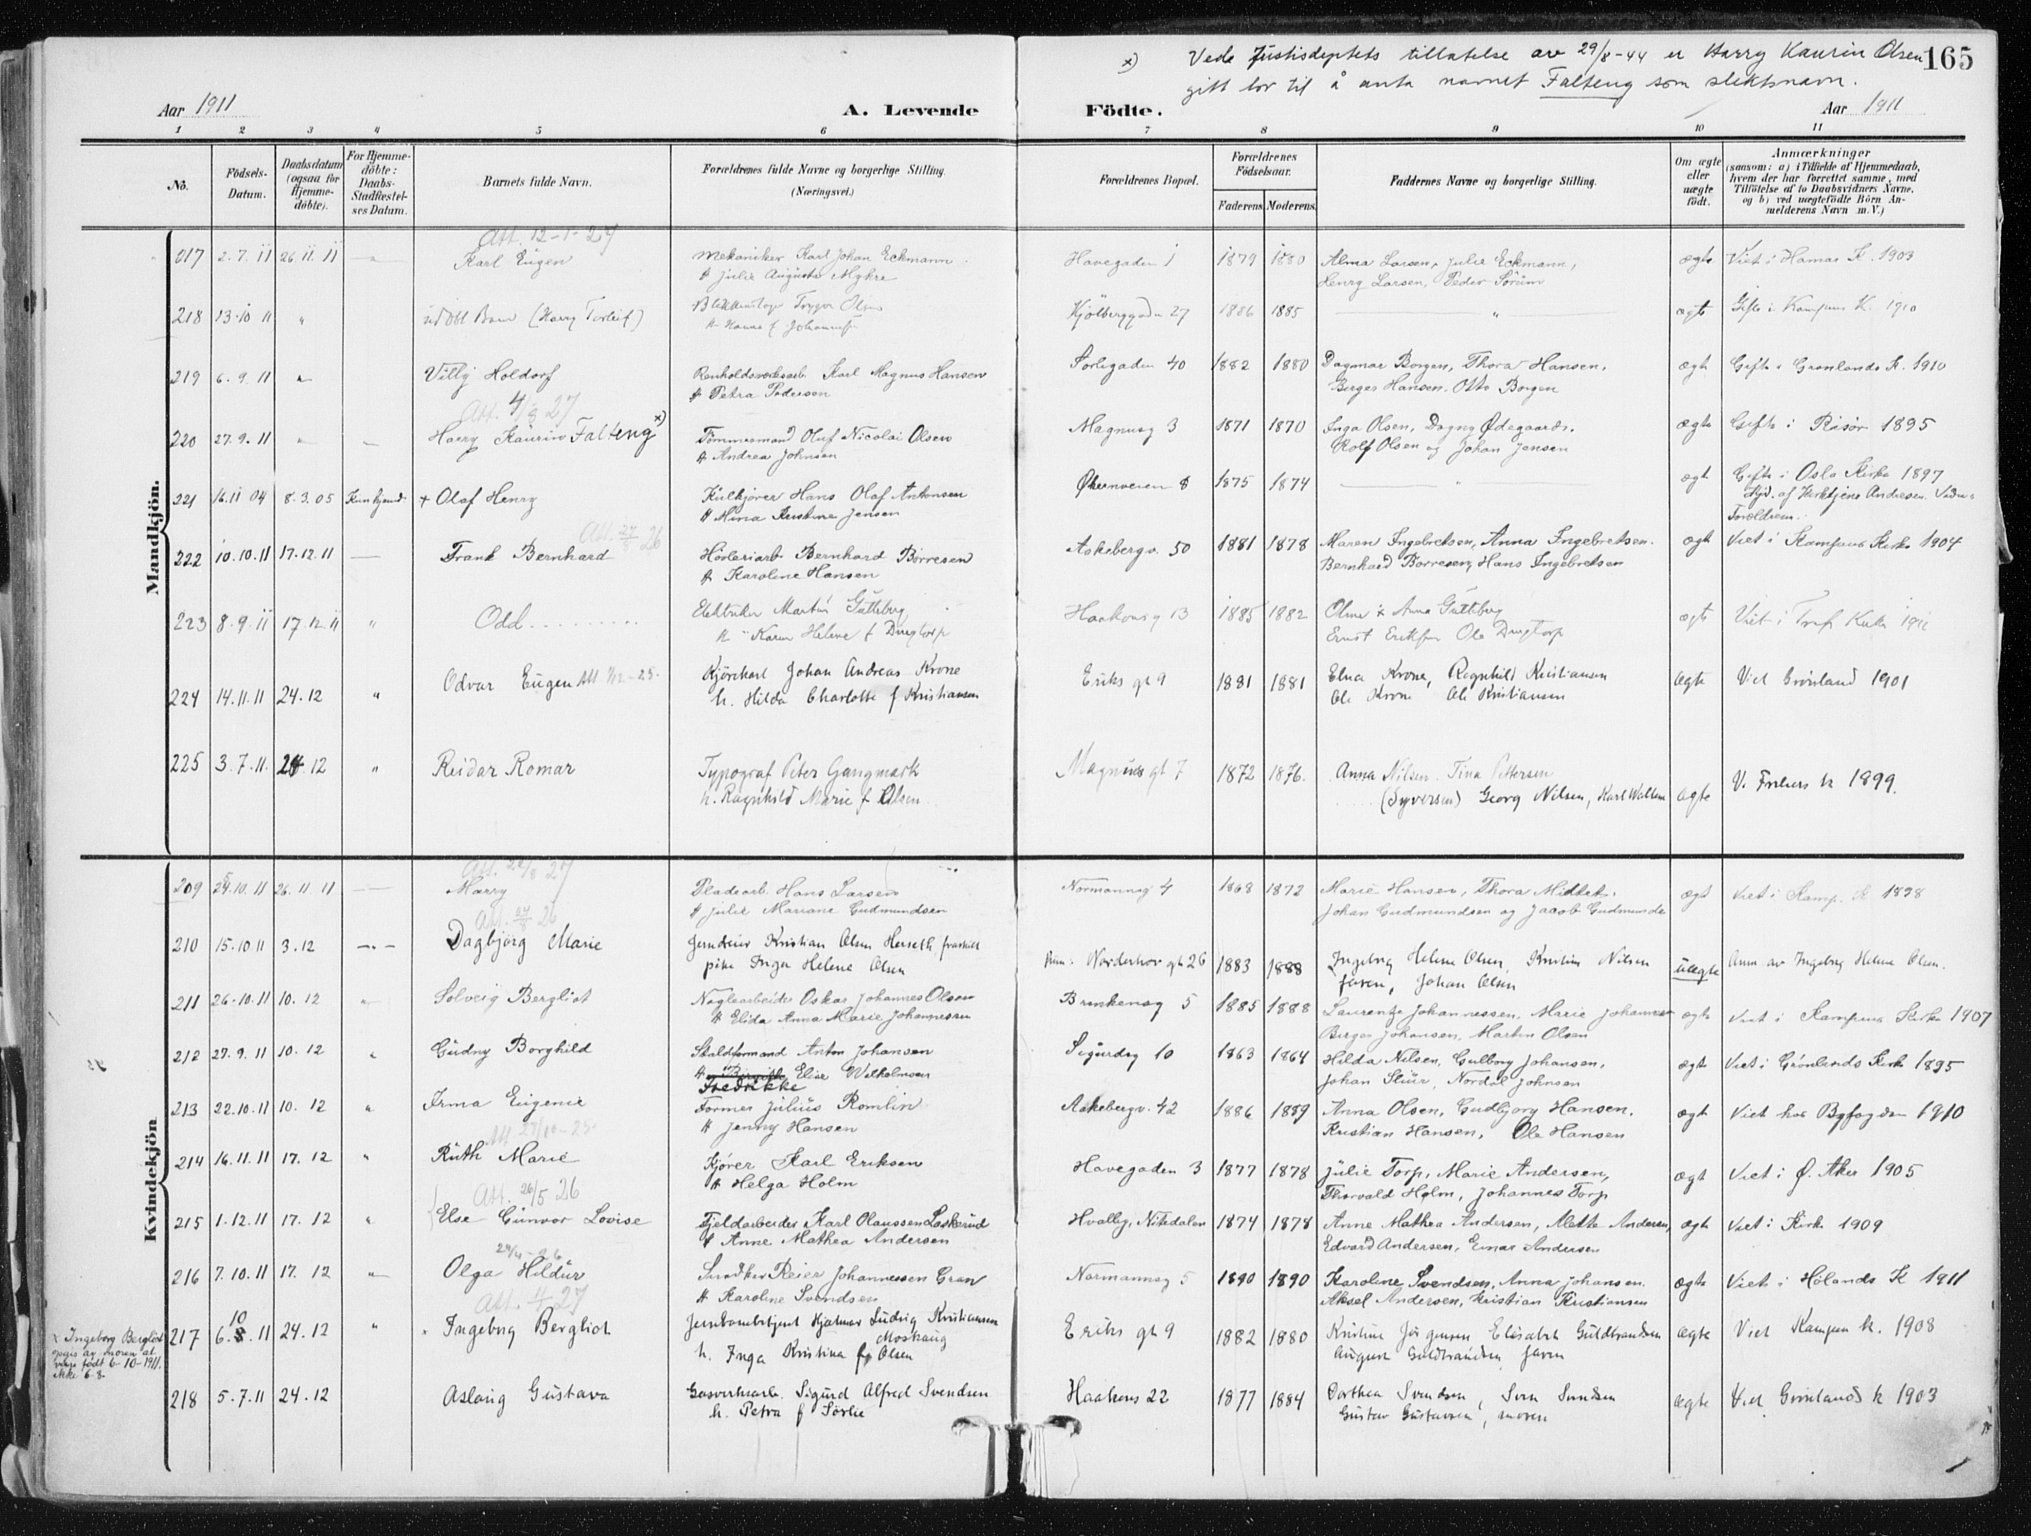 x) Vede Justisdeptets tillatelse av 29/8-44 er Harry Kaurin Olsen
gitt lov til å anta navnet Falteng som slektsnavn.
165
Aar 1911 A. Levende Födte. Aar 1911
1 2 3 4 5 6 7 8 9 10 11
No. Födsels-Datum. Daabsdatum (ogsaa for Hjemme-döbte). For Hjemme-döbte: Daabs-Stadfæstel-ses Datum. Barnets fulde Navn. Forældrenes fulde Navne og borgerlige Stilling. (Næringsvei.) Forældrenes Bopæl. Forældrenes Födselsaar. Faderens Moderens. Faddernes Navne og borgerlige Stilling. Om ægte eller uægte födt. Anmærkninger (saasom: a) i Tilfælde af Hjemmedaab, hvem der har forrettet samme, med Tilföielse af to Daabsvidners Navne, og b) ved uægtefödte Börn An-melderens Navn m.V.)
Mandkjön.
Att. 12-1-27
217 2.7.11 26.11.11 Karl Eugen Mekaniker Karl Johan Eckmann Havegaden 1 1879 1880 Alma Larsen, Julie Eckmann, ægte Viet i Hamar K. 1903
H Julie Augusta Myhre Henry Larsen, Peder Sörum
218 13.10.11 " udöbt Barn (Harry Torleif) Trygve Olsen Kjölberggaden 27 1886 1885 " ægte Gifte i Kampens K. 1910
219 6.9.11 " Villy Holdorf Renholdsverksarb. Karl Magnus Hansen Sorligaden 40 1882 1880 Dagmar Borgen, Thora Hansen, ægt Gifte i Grønlands K. 1910
H Petra Pedersen Birger Hansen, Otto Borgen
Att. 4/8 27
220 27.9.11 " Harry Kaurin Falteng x) Tömmermand Oluf Nicolai Olsen Magnusg 3 1871 1870 Inga Olsen, Dagny Ødegaard, ægte Gifte i Risør 1895
H Andrea Johnsen Rolf Olsen og Johan Jensen
221 16.11.04 8.3.05 + Olaf Henry Kulkjører Hans Olaf Antonsen Økernveien 8 1875 1874 " ægt Gifte i Oslo Kirke 1897
H Mina Kristine Jensen Hjd. af Andresen. Vidner
Forældrene.
Att. 27/8 26
222 10.10.11 17.12.11 Frank Bernhard Bernhard Børresen Aakebergv. 50 1881 1878 Maren Ingebretsen, Anna Ingebretsen. ægt Viet i Kampens Kirke 1904
H Karoline Hansen Bernhard Børresen, Hans Ingebretsen
223 8.9.11 17.12.11 " Odd Martin Gutteberg Haakonsg 13 1885 1882 Anna Gutteberg ægte Viet i
h Karen Helene f Ernst Eriksen Ole
224 14.11.11 24.12 " Odvar Eugen Att 4/12-25. Kjörekarl Johan Andreas Krone Eriks gt 9 1881 1881 Elna Krone, Ragnhild Kristiansen Ægte Viet Grönland 1901
h. Hilda Charlotte f Kristiansen Ole Krone Ole Kristiansen
225 3.7.11. 24.12 " Reidar Romar Typograf Peter Gangmark Magnus gt 7 1872 1876. Anna Nilsen. Tina Pettersen
h. Ragnhild Marie f Olsen (Syversen) Georg Nilsen, Karl Wallem ægte V. Frikens k 1899.
Kvindekjön
Att. 22/8 27
209 24.10.11 26.11.11 Marry Pladearb. Hans Larsen Normannsg 4 1868 1872 Marie Hansen, Thora ægt Viet i Kamp. K 1898
H Julie Mariane Gudmundsen Johan Gudmundsen og Jacob Gudmunds
Att. 27/8 26
210 15.10.11 3.12 Dagbjørg Marie Kristian Olsen Herseth Norderhov gt 26 1883 1888 Ingeborg Helene Olsen, Kristine Nilsen uægte Anm av Ingeborg Helene Olsen.
pike Inga Helene Olsen faren, Johan Olsen
211 26.10.11 10.12 " Solveig Bergliot Naglearbeider Oskar Johannes Olsen Brinkensg 5 1885 1888 Laurentze Johannessen, Marie Johannes ægte Viet i Kampens Kirke 1907
H Elida Anna Marie Johannesen Birger Johansen, Martin Olsen
212 27.9.11 10.12 " Gudny Borghild Staldformand Anton Johansen Sigurdsg 10 1863 1864 Hilda Nilsen, Gulborg Johansen, ægte Viet i Grönlands Kirke 1895
H Elise Wilhelmsen Johan Stuur, Nordal Johnsen
Fredrikke
213 22.10.11 10.12 " Irma Eugenie Former Julius Romlin Aakebergv. 42 1886 1889 Anna Olsen, Gudbjorg Hansen, ægt Viet hos Byfogden 1910
H Jenny Hansen Kristian Hansen, Ole Hansen
Att 27/10-25.
214 16.11.11 17.12 " Ruth Marie Kjører Karl Eriksen Havegaden 3 1877 1878 Julie Torp, Marie Andersen, ægt Viet i Ø. Aker 1905
H Helga Holm Thorvald Holm, Johannes Torp
Att. 26/5 26
215 1.12.11 17.12 " Else Gunvor Lovise Fjeldarbeider Karl Olaussen Laskerud Hvalby, Nitedalen 1874 1878 Anne Mathea Andersen, Mette Andersen, ægte Viet i Kirke 1909
f Anne Mathea Andersen Edvard Andersen, Einar Andersen
29/4-26
216 7.10.11 17.12 " Olga Hildur Snedker Reier Johannessen Gran Normannsg 5 1890 1890 Karoline Svendsen, Anna Johansen. ægte Viet i Hölands K 1911
H Karoline Svendsen Aksel Andersen, Kristian Kristiansen
Att. 4/ 27
x Ingeborg Bergliot
opgis av moren at
være født 6-10-1911.
ikke 6-8-
217 6.8.11 10 24.12 " Ingeborg Bergliot Jernbanebetjent Hjalmar Ludvig Kristiansen Eriks gt 9 1882 1880 Kristine Jörgensen, Elisabet Guldbrandsen Ægte Viet Kampen k. 1908
Moskaug
h. Inga Kristina f Olsen August Guldbrandsen faren
218 5.7.11 24.12 Aslaug Gustava Gasverksarb. Sigurd Alfred Svendsen Haakons 22 1877 1884 Dorthea Svendsen, Sven Svendsen Ægte Viet Grönlands k 1903
h. Petra f Sörlie Gustav Gustavsen, moren